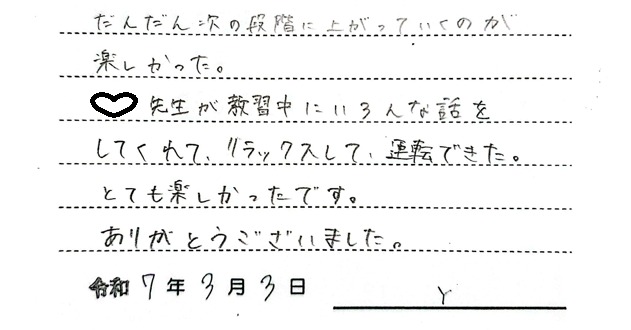 だんだん次の段階に上がっていくのが
楽しかった。
先生が教習中にいろんな話を
してくれて、リラックスして、運転できた。
とても楽しかったです。
ありがとうございました。
令和 7 年 3 月 3 日 Y